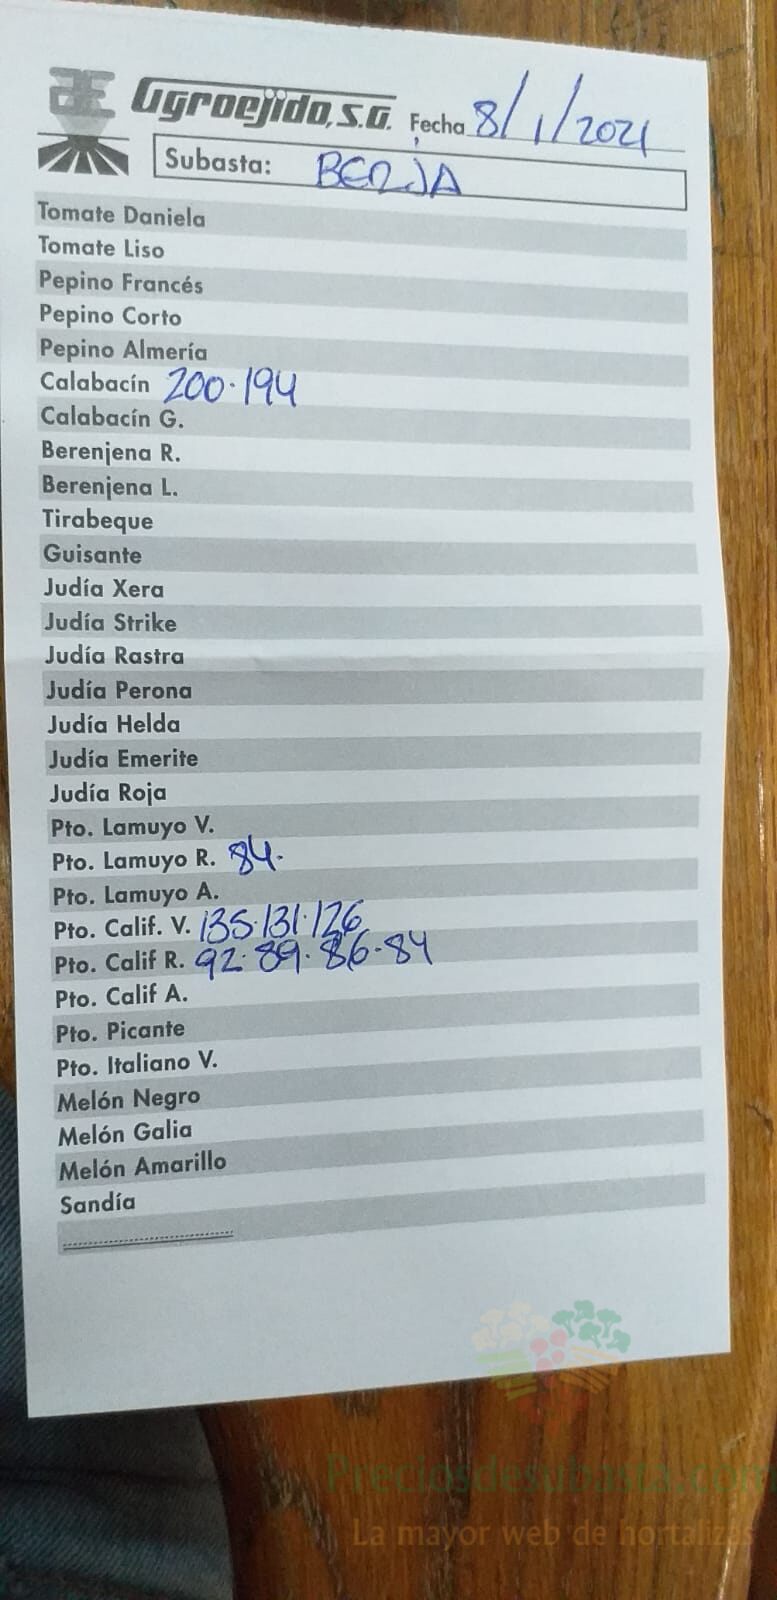 Agroejido, S.A. Fecha 8/1/2021
Subasta: BERJA
Tomate Daniela
Tomate Liso
Pepino Francés
Pepino Corto
Pepino Almería
Calabacín 200·194
Calabacín G.
Berenjena R.
Berenjena L.
Tirabeque
Guisante
Judía Xera
Judía Strike
Judía Rastra
Judía Perona
Judía Helda
Judía Emerite
Judía Roja
Pto. Lamuyo V.
Pto. Lamuyo R. 84.
Pto. Lamuyo A.
Pto. Calif. V. 135·131·126
Pto. Calif R. 92·89·86·84
Pto. Calif A.
Pto. Picante
Pto. Italiano V.
Melón Negro
Melón Galia
Melón Amarillo
Sandía
Preciosdesubasta.com
La mayor web de hortalizas